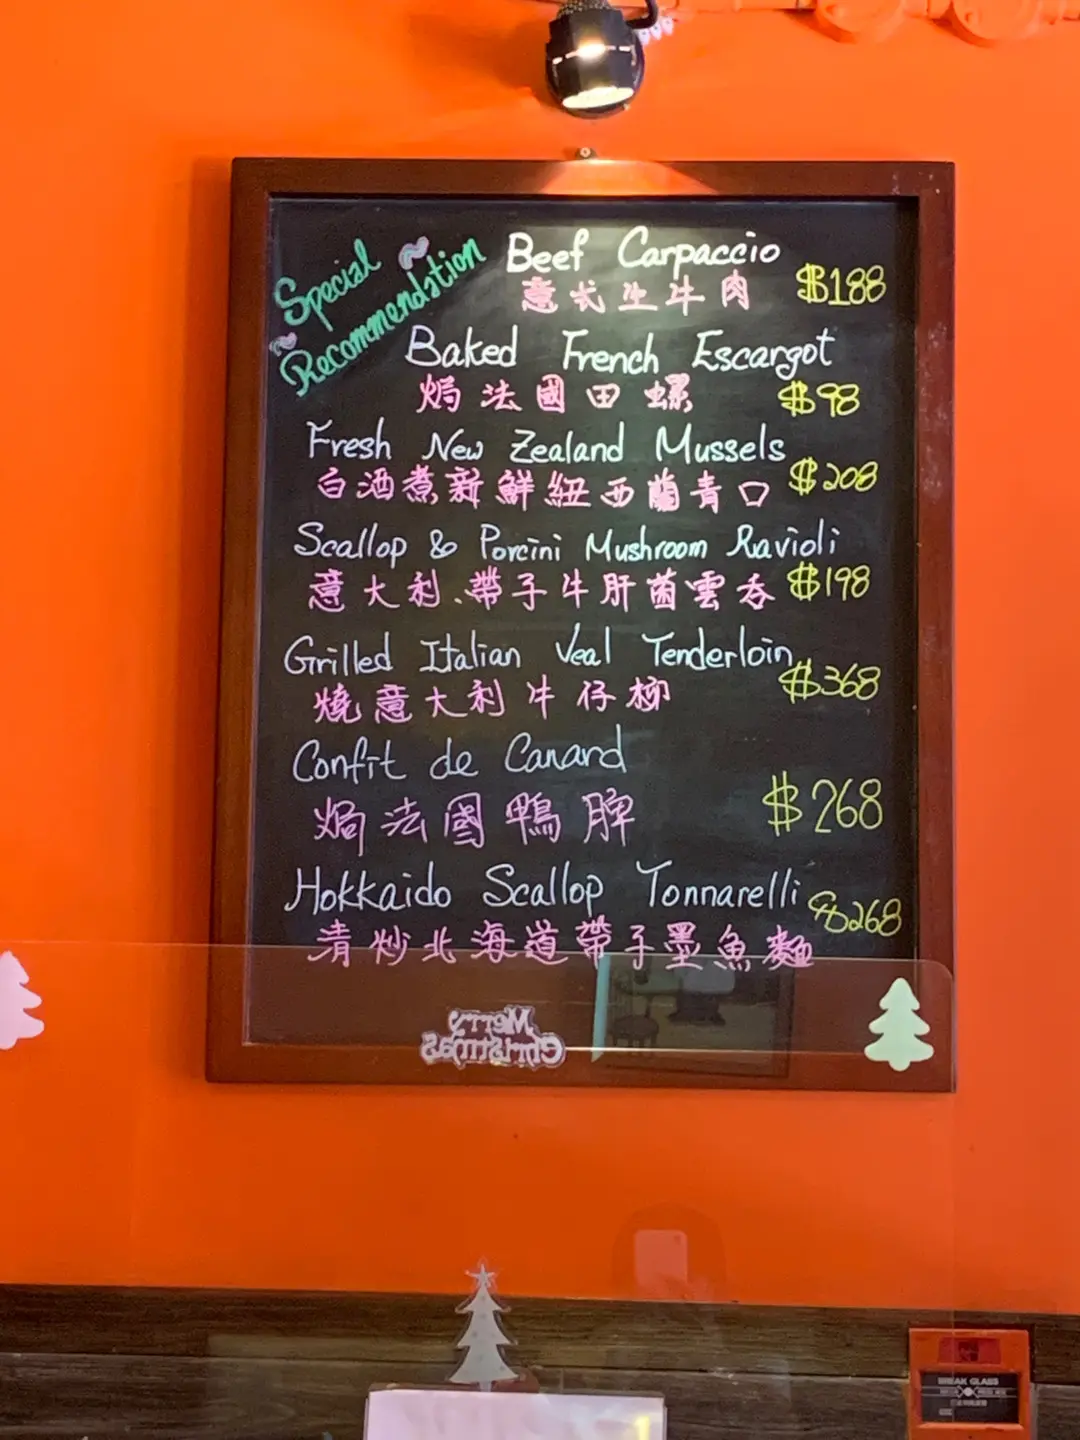 Special
Recommendation
Beef Carpaccio
意式生牛肉 $188
Baked French Escargot
焗法國田螺 $98
Fresh New Zealand Mussels
白酒煮新鮮紐西蘭青口 $208
Scallop & Porcini Mushroom Ravioli
意大利、帶子牛肝菌雲吞 $198
Grilled Italian Veal Tenderloin
燒意大利牛仔柳 $368
Confit de Canard
焗法國鴨脾 $268
Hokkaido Scallop Tonnarelli $268
清炒北海道帶子墨魚麵
Merry
Christmas
BREAK GLASS